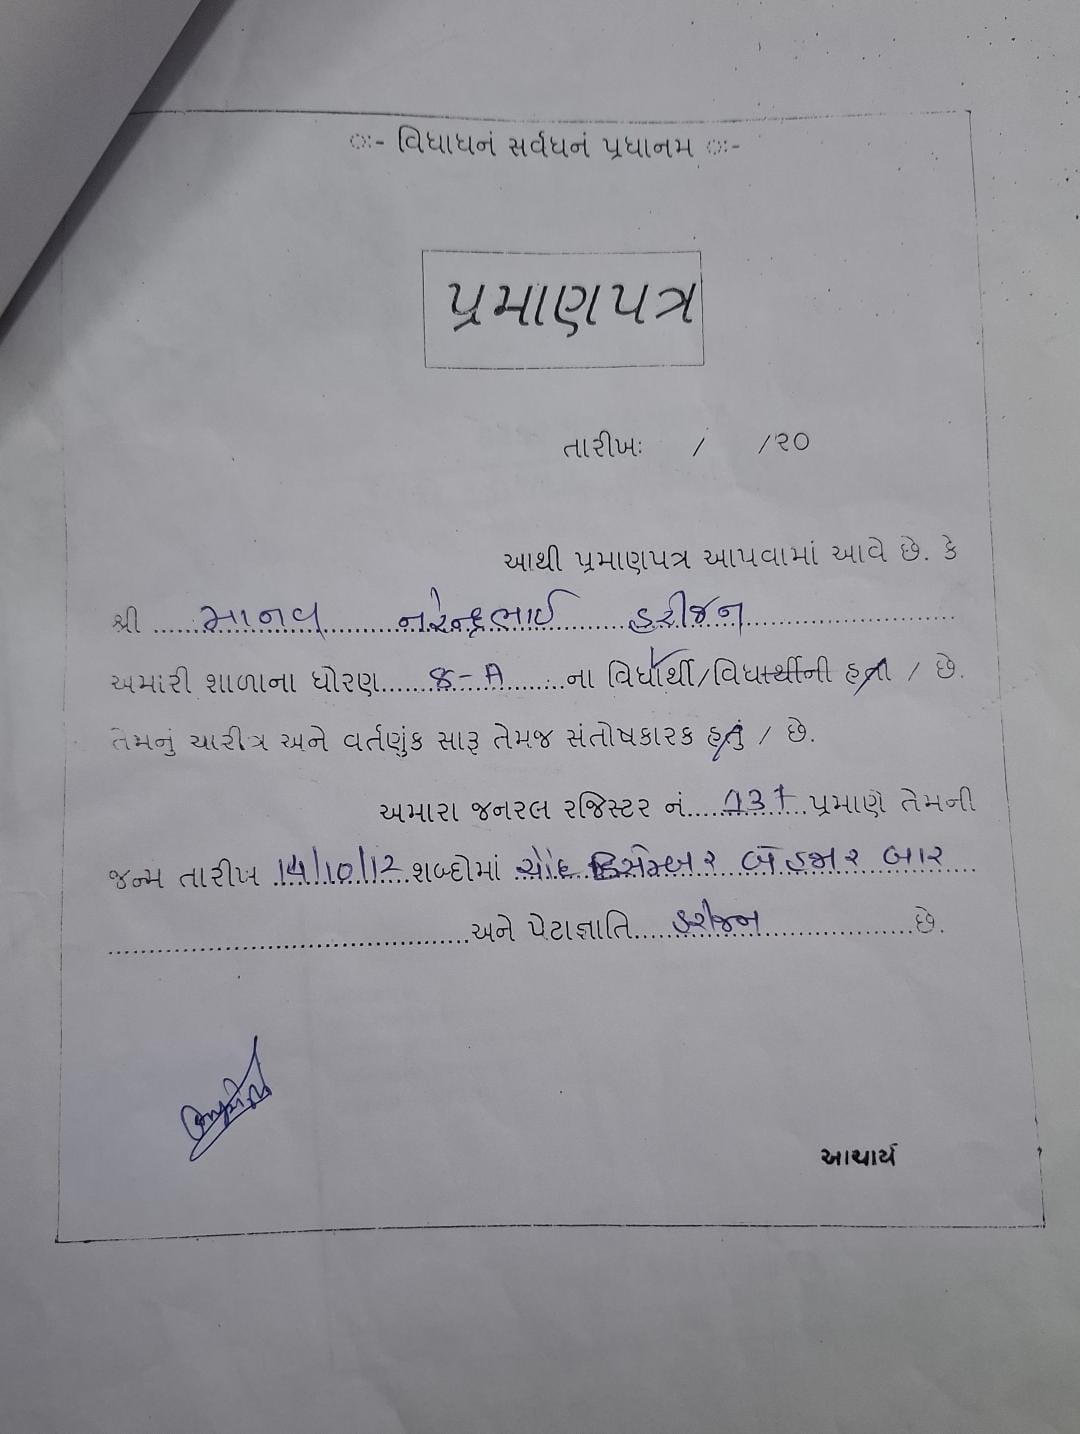 ઃ- વિદ્યાધનં સર્વધનં પ્રધાનમ ઃ-
પ્રમાણપત્ર
તારીખઃ / /૨૦
આથી પ્રમાણપત્ર આપવામાં આવે છે. કે
શ્રી માનવ નરેન્દ્રભાઈ હરીજન
અમારી શાળાના ધોરણ 8-A ના વિદ્યાર્થી/વિદ્યાર્થીની હતા / છે.
તેમનું ચારીત્ર અને વર્તણુંક સારૂ તેમજ સંતોષકારક હતું / છે.
અમારા જનરલ રજિસ્ટર નં. 137 પ્રમાણે તેમની
જન્મ તારીખ 14/10/12 શબ્દોમાં ચૌદ ડિસેમ્બર બે હજાર બાર
અને પેટાજ્ઞાતિ હરીજન છે.
આચાર્ય